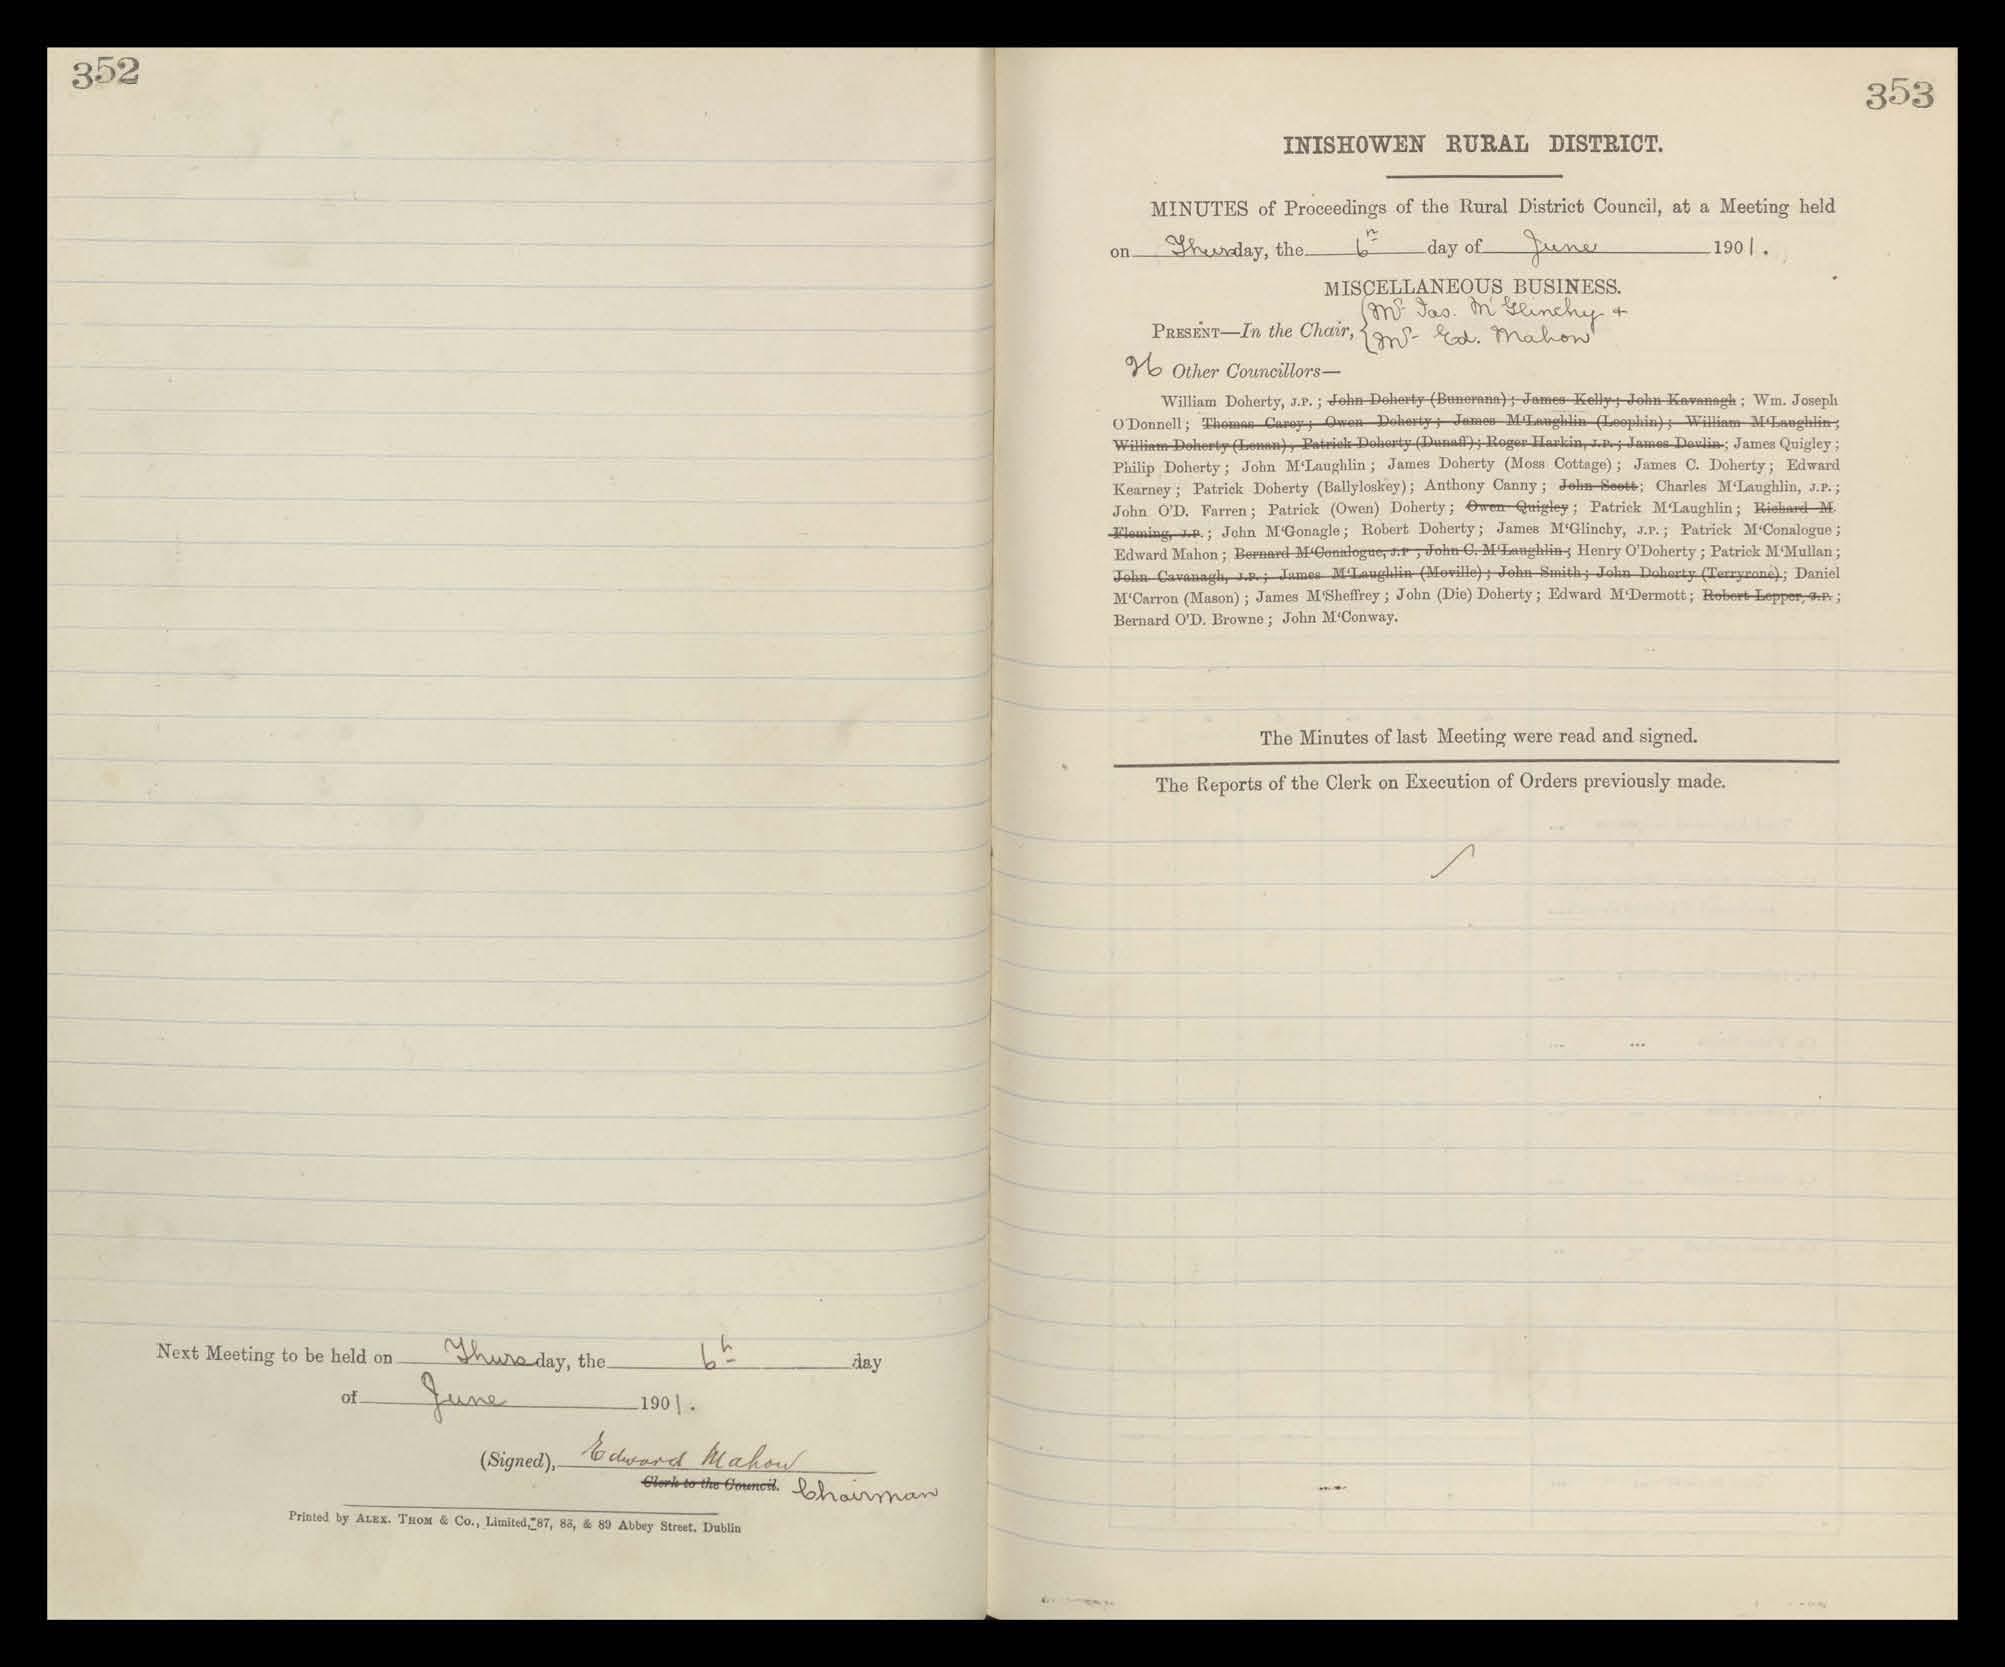 352
Next Meeting to be held on Thursday, the 6th day
of June 1901.
(Signed), Edward Mahon
Clerk to the Council. Chairman
Printed by ALEX. THOM & Co., Limited, 87, 88, & 89 Abbey Street, Dublin
353
INISHOWEN RURAL DISTRICT.
MINUTES of Proceedings of the Rural District Council, at a Meeting held
on Thursday, the 6th day of June 1901.
MISCELLANEOUS BUSINESS.
Mr Jas. McGlinchy +
PRESENT—In the Chair,
Mr Ed. Mahon
26 Other Councillors—
William Doherty, J.P.; John Doherty (Buncrana); James Kelly; John Kavanagh; Wm. Joseph
O'Donnell; Thomas Carey; Owen Doherty; James M‘Laughlin (Leophin); William M‘Laughlin;
William Doherty (Lenan); Patrick Doherty (Dunaff); Roger Harkin, J.P.; James Devlin; James Quigley;
Philip Doherty; John M‘Laughlin; James Doherty (Moss Cottage); James C. Doherty; Edward
Kearney; Patrick Doherty (Ballyloskey); Anthony Canny; John Scott; Charles M‘Laughlin, J.P.;
John O'D. Farren; Patrick (Owen) Doherty; Owen Quigley; Patrick M‘Laughlin; Richard M.
Fleming, J.P.; John M‘Gonagle; Robert Doherty; James M‘Glinchy, J.P.; Patrick M‘Conalogue;
Edward Mahon; Bernard M‘Conalogue, J.P.; John C. M‘Laughlin; Henry O'Doherty; Patrick M‘Mullan;
John Cavanagh, J.P.; James M‘Laughlin (Moville); John Smith; John Doherty (Terryrone); Daniel
M‘Carron (Mason); James M‘Sheffrey; John (Die) Doherty; Edward M‘Dermott; Robert Lepper, J.P.;
Bernard O'D. Browne; John M‘Conway.
The Minutes of last Meeting were read and signed.
The Reports of the Clerk on Execution of Orders previously made.